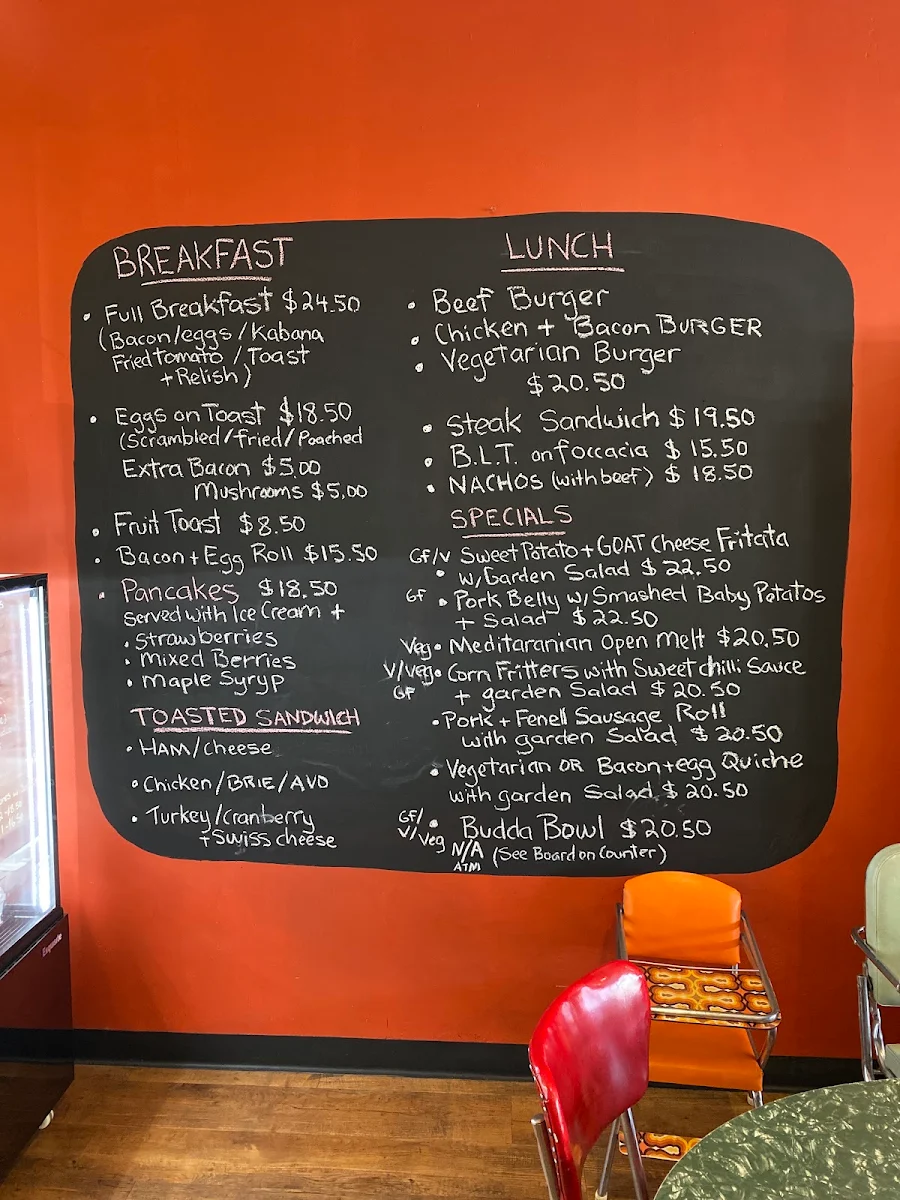 BREAKFAST
• Full Breakfast $24.50
(Bacon/eggs/Kabana
Fried tomato/Toast
+Relish)
• Eggs on Toast $18.50
(Scrambled/Fried/Poached
Extra Bacon $5.00
Mushrooms $5.00
• Fruit Toast $8.50
• Bacon+Egg Roll $15.50
• Pancakes $18.50
Served with Ice Cream +
• Strawberries
• Mixed Berries
• Maple Syryp
TOASTED SANDWICH
• HAM/cheese
• Chicken/BRIE/AVO
• Turkey/cranberry
+Swiss cheese
LUNCH
• Beef Burger
• Chicken + Bacon BURGER
• Vegetarian Burger
$20.50
• Steak Sandwich $19.50
• B.L.T. on foccacia $15.50
• NACHOS (with beef) $18.50
SPECIALS
GF/V Sweet Potato + GOAT Cheese Fritata
• w/Garden Salad $22.50
GF • Pork Belly w/Smashed Baby Potatos
+ Salad $22.50
Veg • Meditaranian Open Melt $20.50
V/Veg • Corn Fritters with Sweet chilli Sauce
GF + garden Salad $20.50
• Pork + Fenell Sausage Roll
with garden Salad $20.50
• Vegetarian OR Bacon+egg Quiche
with garden Salad $20.50
GF/ • Budda Bowl $20.50
V/Veg N/A (See Board on Counter)
ATM